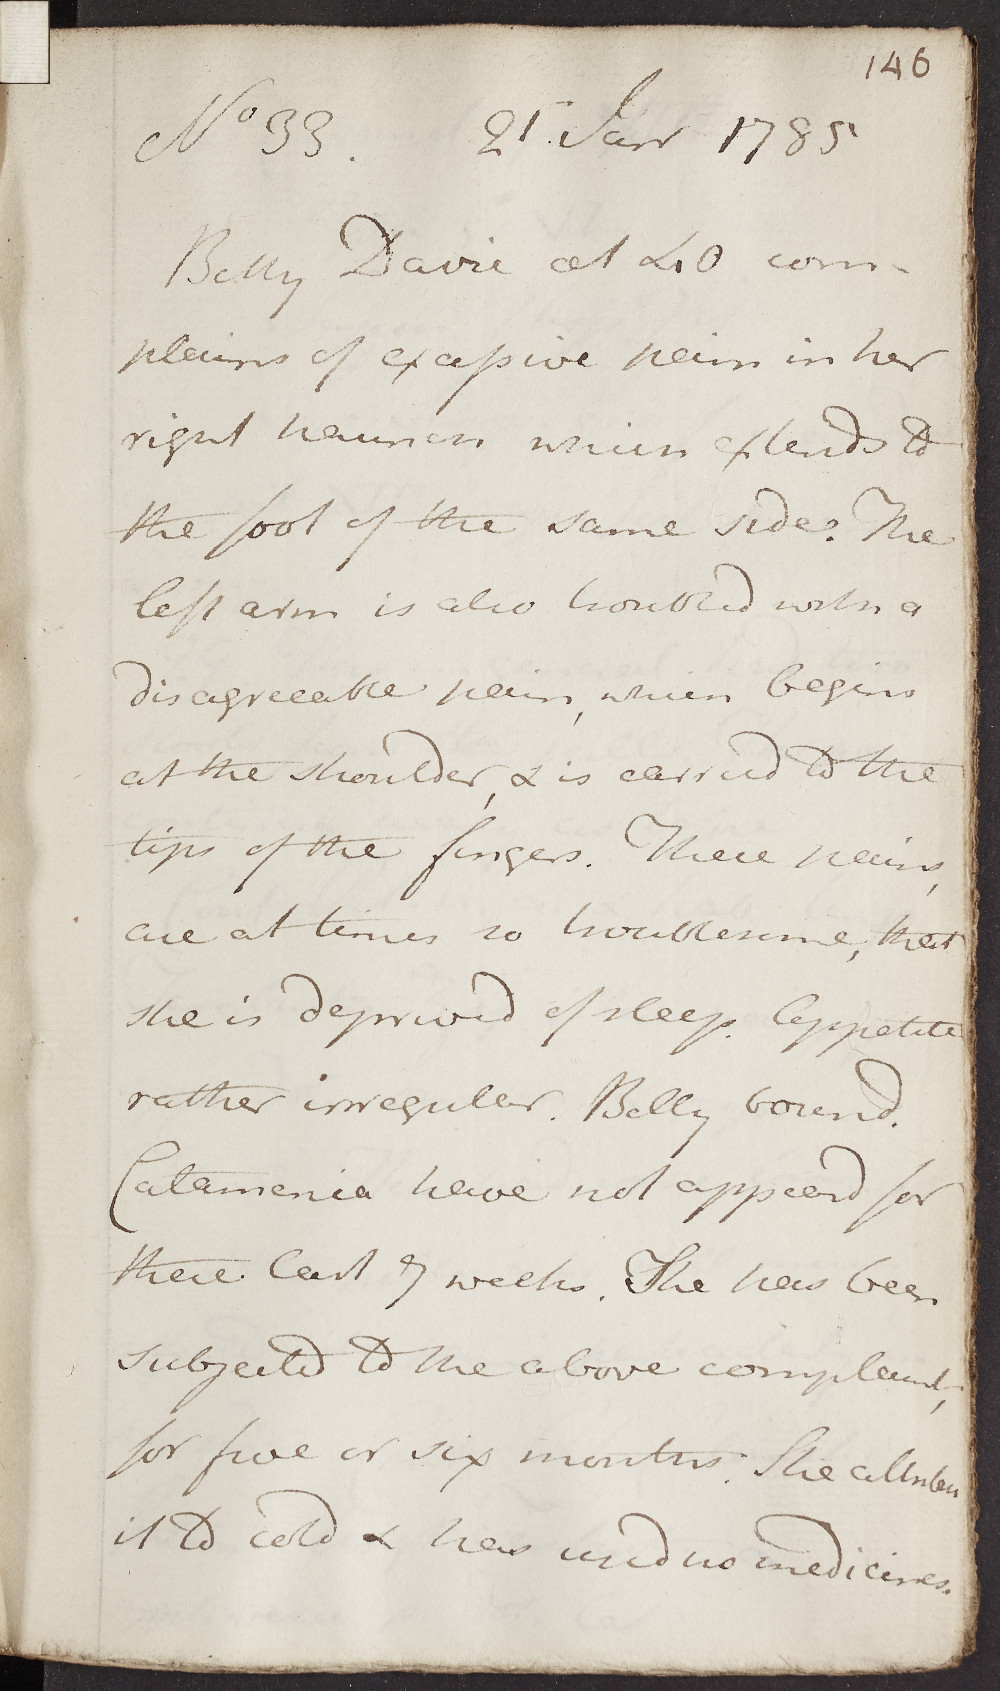 146
No 33. 21. Jany 1785
Betty Davie æt 40 com-
plains of excessive pain in her
right haunch which extends to
the foot of the same side. The
left arm is also troubled with a
disagreeable pain, which begins
at the shoulder, & is carried to the
tips of the fingers. These pains,
are at times so troublesome, that
she is deprived of sleep. Appetite
rather irregular. Belly bound.
Catamenia have not appeard for
these last 7 weeks. She has been
subjected to the above complaint,
for five or six months. She attributes
it to cold & has used no medicines.